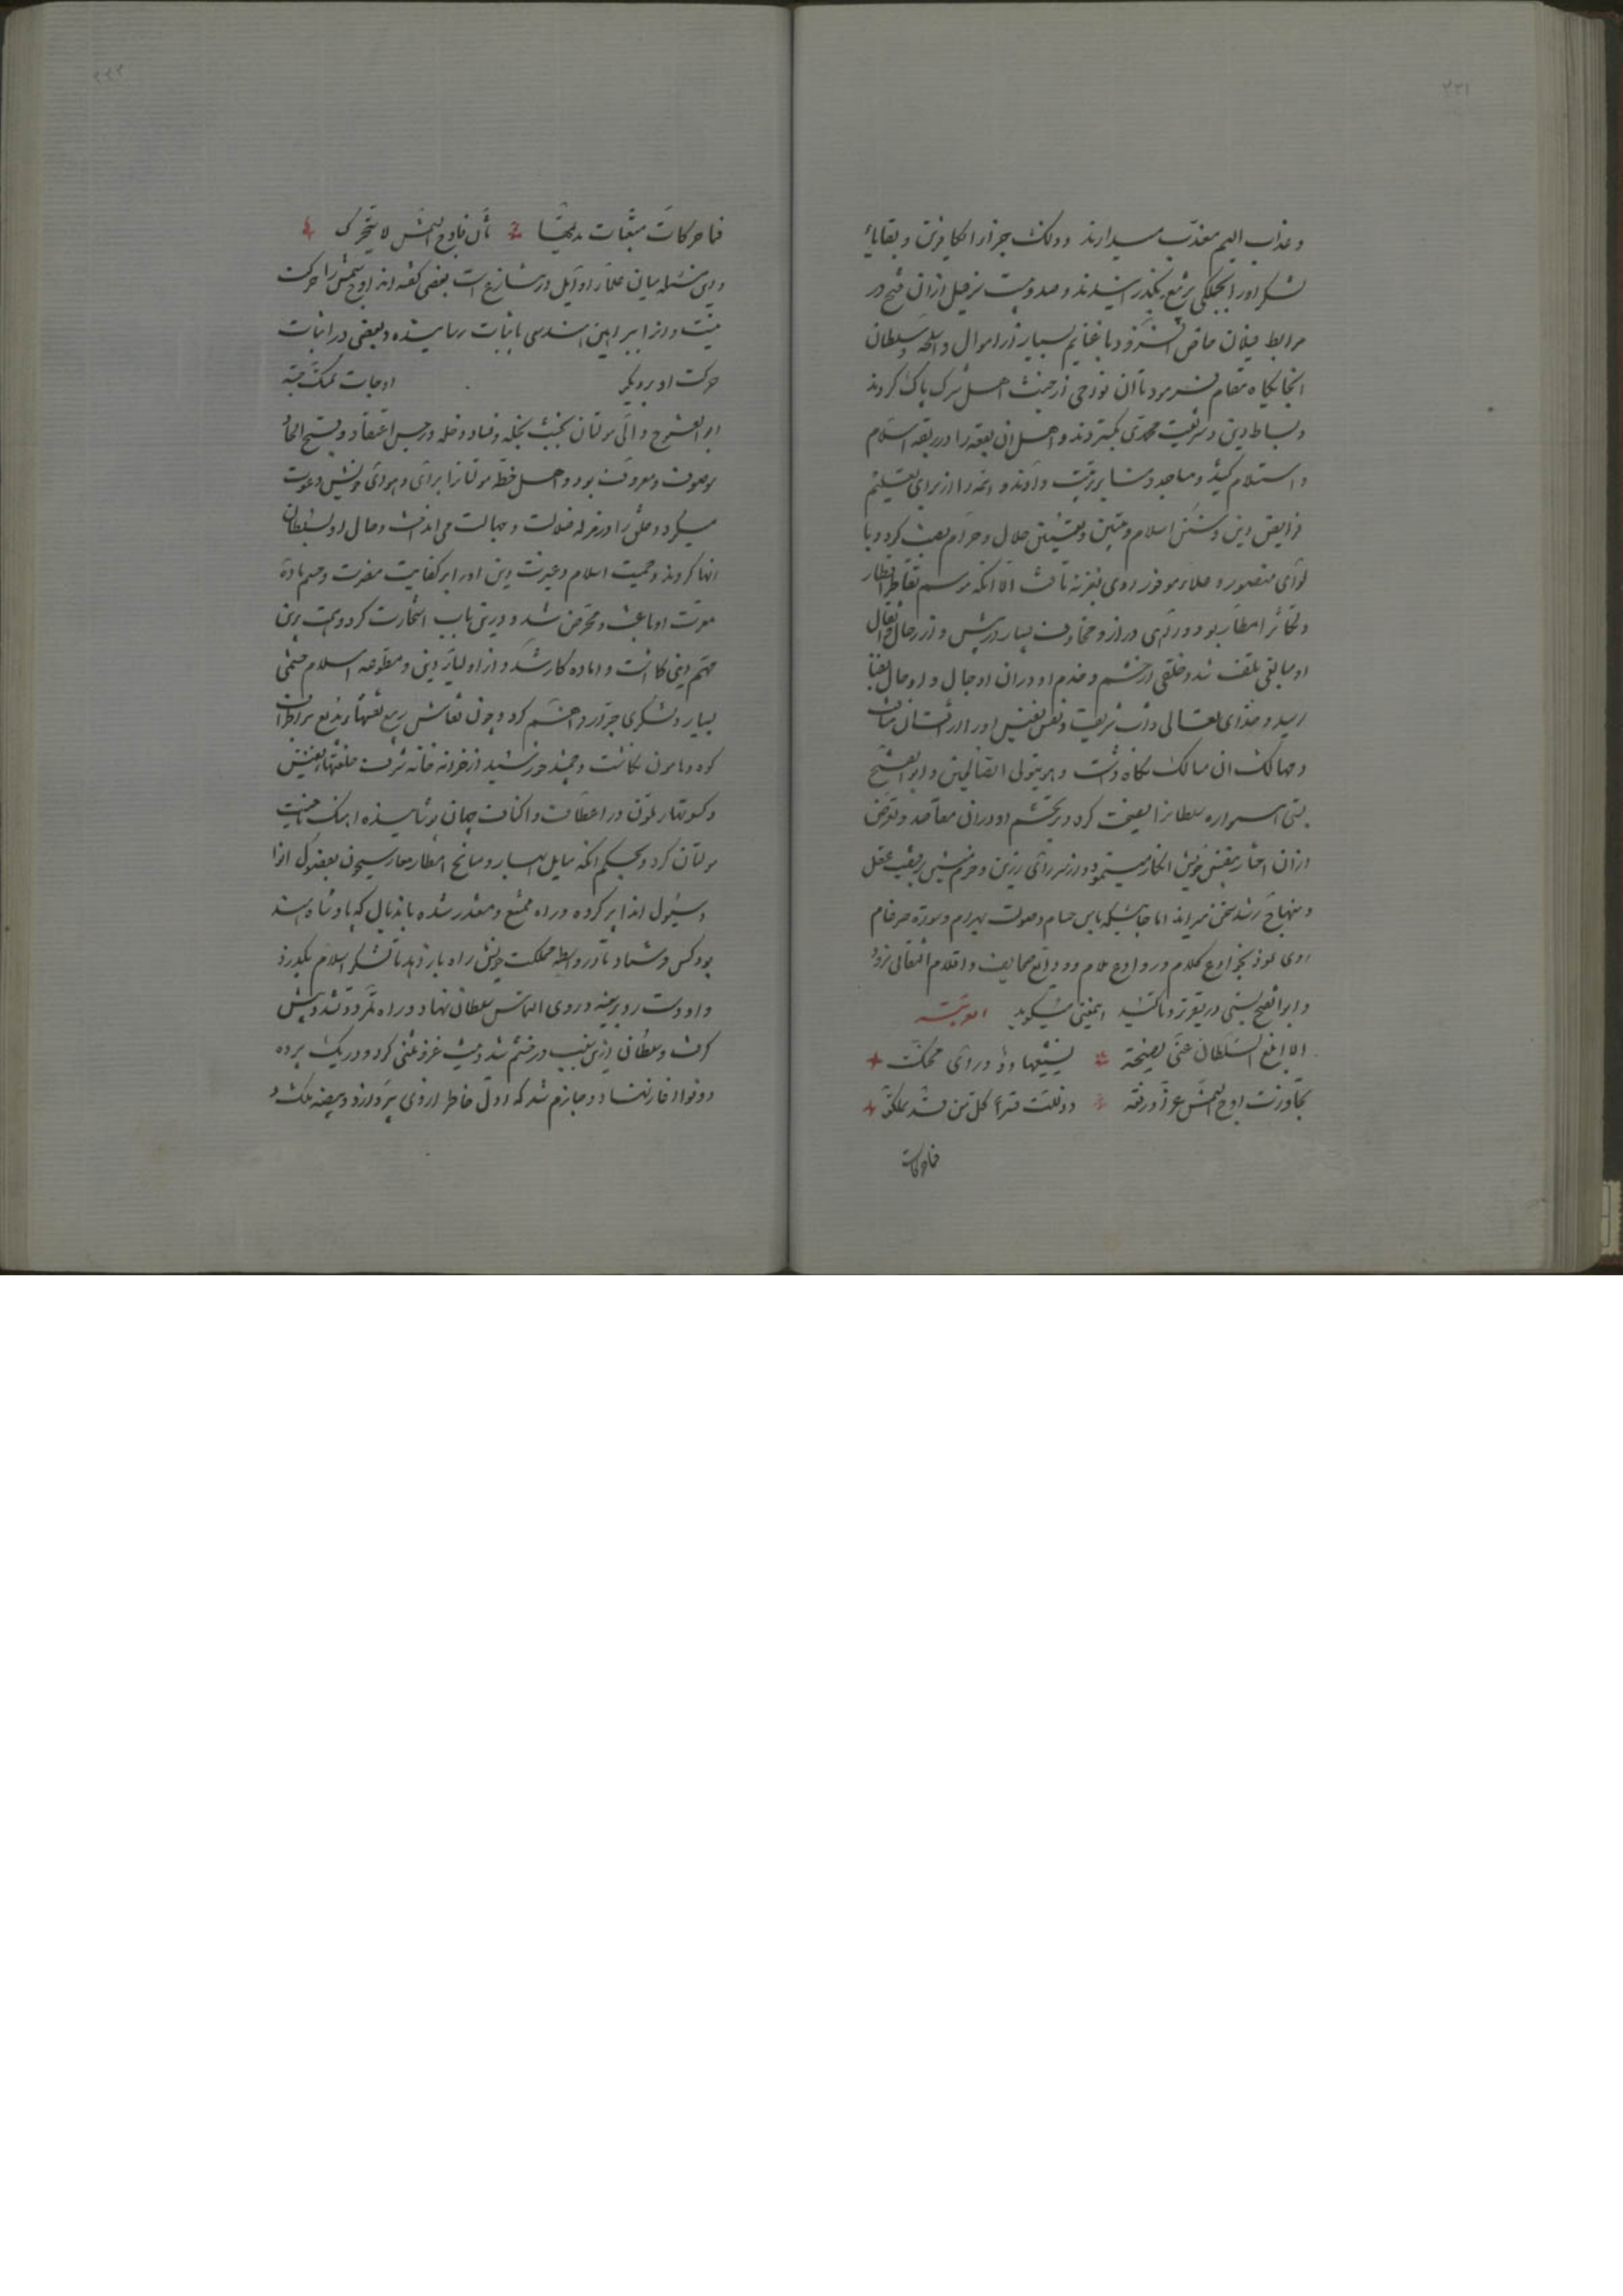 ۲۲۱
و عذاب الیم معذب میدارند و ذلک جزاء الکافرین و بقایاء
لشکر اورا بجملکی بر تیغ بکذرانیدند و صد و بیست نر فیل ازان فتح در
مرابط فیلان خاص افزود با غنایم بسیار از اموال و اسلحه و سلطان
انجایکاه مقام فرمود تا ان نواحی از خبث اهل شرک پاک کردند
و بساط دین و شریعت محمدی بکستردند و اهل ان بقعه را در ربقه اسلام
و استسلام کشید و مساجد و منابر ترتیب دادند و ائمه را از برای تعلیم
فرایض دین و سنن اسلام و تبیین و تعیین حلال و حرام نصب کرد و با
لوای منصور و علاء موفور روی بغزنه تافت الا انکه موسم تقاطر اقطار
و تکاثر امطار بود و راهی دراز و مخاوف بسیار در پیش و از رحال و اثقال
او مبالغی تلف شد و خلقی از حشم و خدم او دران اوجال و اوحال بفنا
رسید و خدای تعالی ذات شریف و نفس نفیس اورا از افتان مخاوف
و مهالک ان مسالک نکاه داشت و هو یتولی الصالحین و ابو الفتح
بستی همواره سلطانرا نصیحت کرد و بر تجشم او دران مقاصد و تعرض
ازان اخطار بنفس خویش انکار مینمود و از سر رای رزین و حزم پیش برقضیت عقل
و منهاج رشد سخن میراند اما جائیکه باس حسام و صولت بهرام و سورة ضرغام
روی نمود بخوادع کلام و روادع ملام و ودایع صحایف و اقلام التفاتی نرود
و ابو الفتح بستی در تقویت و تاکید این معنی میکوید العربیة
الا ابلغ السلطان عنی نصیحة یشیعها ود و رای محنک
تجاوزت اوج الشمس عزا و رفعة و ذللت قسرا کل من قد یملک
فما حرکات
۲۲۲
فما حرکات متعبات مدیتها تأن فاوج الشمس لا یتحرک
و این مسئله میان علماء اوایل در تنازع است بعضی کفته اند اوج شمس را حرکت
نیست و از براهین هندسی باثبات رسانیده و بعضی در اثبات
حرکت او بر دیکر اوجات تمسک جسته
ابو الفتوح والی مولتان بخبث نحله و فساد دخله و رجس اعتقاد و قبح الحاد
موصوف و معروف بود و اهل خطه مولتانرا برای و هوای خویش دعوت
میکرد و خلق را در مزله ضلالت و جهالت می انداخت و حال او بسلطان
انها کردند و حمیت اسلام و غیرت دین اورا بر کفایت مضرت و حسم مادة
معرت او باعث و محرض شد و درین باب استخارت کرد و همت برین
مهم دینی کماشت و اماده کار شد و از اولیاء دین و مطوعه اسلام جمعی
بسیار و لشکری جرار فراهم کرد و چون نقاش ربیع نقشهاء بدیع بر اطراف
کوه و هامون نکاشت و جمشید خورشید از خزانه خانه شرف خلعتهاء نفیس
و کسوتهاء ملون در اعطاف و اکناف جهان پوشانیده اهنک ناحیت
مولتان کرد و بحکم انکه سایل انهار و سایح اقطار معابر سیحون بفضول انوا
و سیول انداء پر کرده و راه ممتنع و متعذر شده باندبال که پادشاه هند
بود کس فرستاد تا در واسطه مملکت خویش راه باز دهد تا لشکر اسلام بکذرد
و او دست رد بر سینه و روی التماس سلطان نهاد و راه تمرد و تشدد پیش
کرفت و سلطان ازین سبب در خشم شد و نیت غزو مثنی کرد و در یک پرده
دو نوا اغاز نهاد و جازم شد که اول خاطر از وی بپردازد و بیضه ملک او